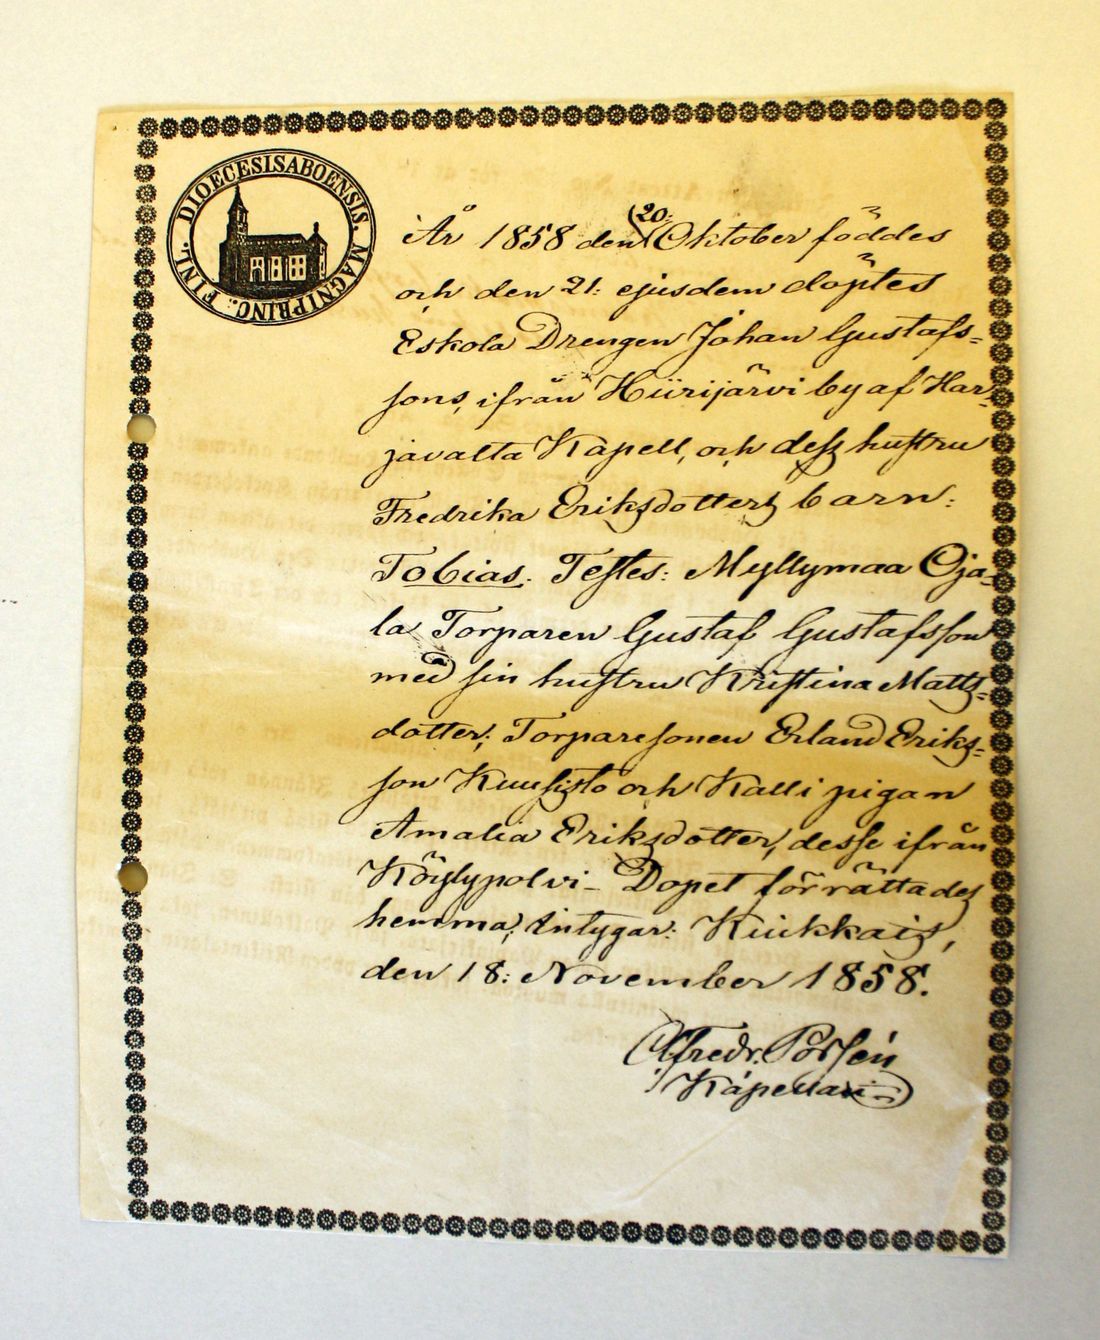 DIOECESISABOENSIS. MAGNIPRINC: FINL.
År 1858 den 20: Oktober föddes
och den 21: ejusdem döptes
Eskola Drengen Johan Gustafs-
sons, ifrån Hiirijärvi by af Har-
javalta Kapell, och dess hustru
Fredrika Eriksdotters barn:
Tobias. Testes: Myllymaa Oja-
la Torparen Gustaf Gustafsson
med sin hustru Kristina Matts-
dotter, Torparesonen Erland Eriks-
son Kuusisto och Kalli pigan
Amalia Eriksdotter, desse ifrån
Köylypolvi – Dopet förrättades
hemma, intygar: Kiukkais,
den 18: November 1858.
Alfredr. Porsén
Kapellan